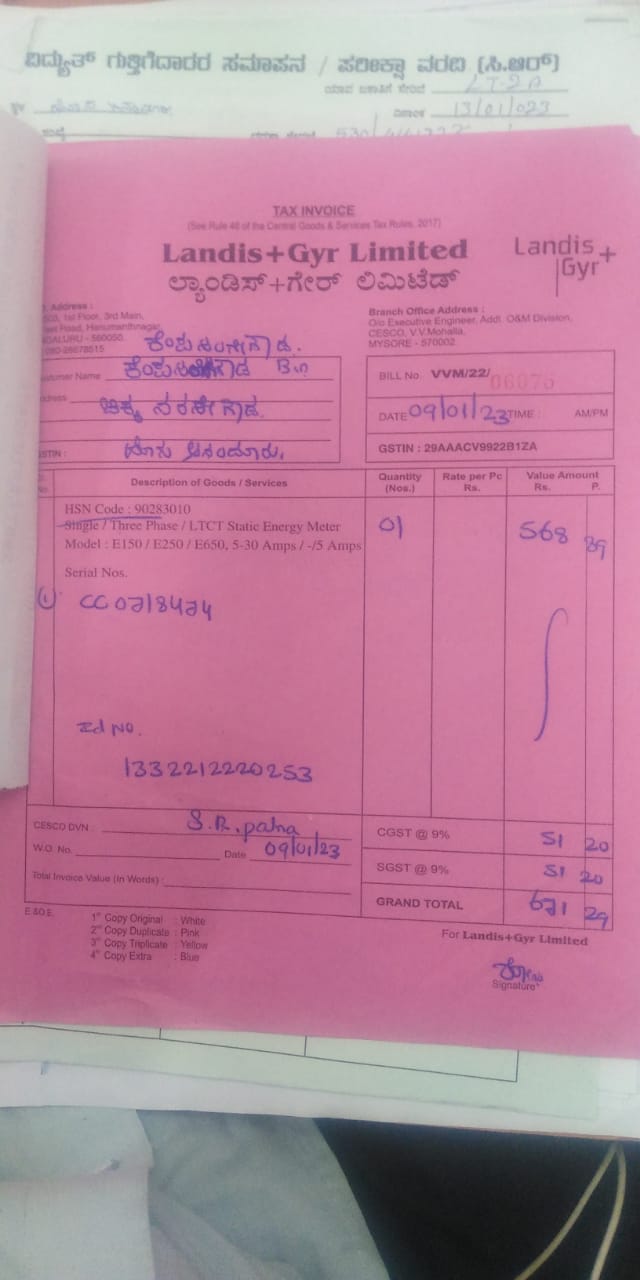 ವಿದ್ಯುತ್ ಗುತ್ತಿಗೆದಾರರ ಸಮಾಪನ / ಪರೀಕ್ಷಾ ವರದಿ (ಸಿ.ಆರ್)
LT-2A
ದಿನಾಂಕ 13/01/023
TAX INVOICE
(See Rule 46 of the Central Goods & Services Tax Rules, 2017)
Landis+Gyr Limited
ಲ್ಯಾಂಡಿಸ್+ಗೇರ್ ಲಿಮಿಟೆಡ್
Landis
Gyr+
Address :
1st Floor, 3rd Main,
Road, Hanumanthnagar,
560050
080-26678615
Branch Office Address :
O/o Executive Engineer, Addl. O&M Division,
CESCO, V.V.Mohalla,
MYSORE - 570002
Customer Name
BILL No. VVM/22/ 06075
DATE 09/01/23 TIME : AM/PM
GSTIN :
GSTIN : 29AAACV9922B1ZA
Description of Goods / Services
Quantity (Nos.)
Rate per Pc Rs.
Value Amount Rs. P.
HSN Code : 90283010
Single / Three Phase / LTCT Static Energy Meter
01 568 89
Model : E150 / E250 / E650, 5-30 Amps / -/5 Amps
Serial Nos.
Id No.
1332212220253
CESCO DVN : S.R.patna
W.O. No. Date 09/01/23
Total Invoice Value (In Words) :
CGST @ 9% 51 20
SGST @ 9% 51 20
GRAND TOTAL 671 29
E.&O.E.
1st Copy Original : White
2nd Copy Duplicate : Pink
3rd Copy Triplicate : Yellow
4th Copy Extra : Blue
For Landis+Gyr Limited
Signature